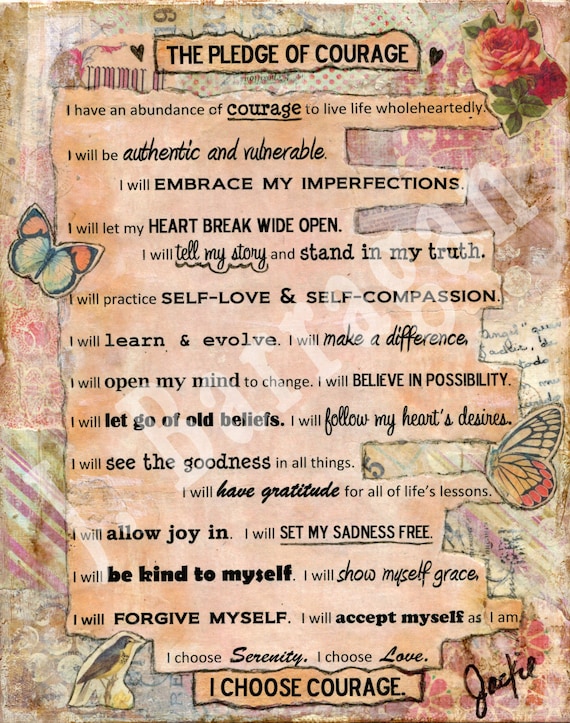 THE PLEDGE OF COURAGE
I have an abundance of courage to live life wholeheartedly.
I will be authentic and vulnerable.
I will EMBRACE MY IMPERFECTIONS.
I will let my HEART BREAK WIDE OPEN.
I will tell my story and stand in my truth.
I will practice SELF-LOVE & SELF-COMPASSION.
I will learn & evolve. I will make a difference.
I will open my mind to change. I will BELIEVE IN POSSIBILITY.
I will let go of old beliefs. I will follow my heart's desires.
I will see the goodness in all things.
I will have gratitude for all of life's lessons.
I will allow joy in. I will SET MY SADNESS FREE.
I will be kind to myself. I will show myself grace.
I will FORGIVE MYSELF. I will accept myself as I am.
I choose Serenity. I choose Love.
I CHOOSE COURAGE.
Jackie
Barragan